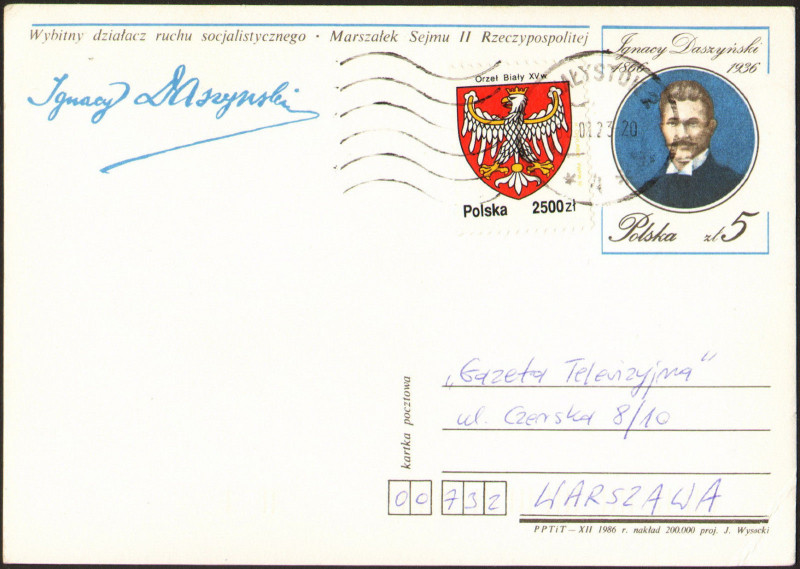 Wybitny działacz ruchu socjalistycznego · Marszałek Sejmu II Rzeczypospolitej
Ignacy Daszyński
Orzeł Biały XV w.
Polska 2500 zł
Ignacy Daszyński
1866 1936
Polska zł 5
kartka pocztowa
„Gazeta Telewizyjna”
ul. Czerska 8/10
00732 WARSZAWA
PPTiT—XII 1986 r. nakład 200.000 proj. J. Wysocki